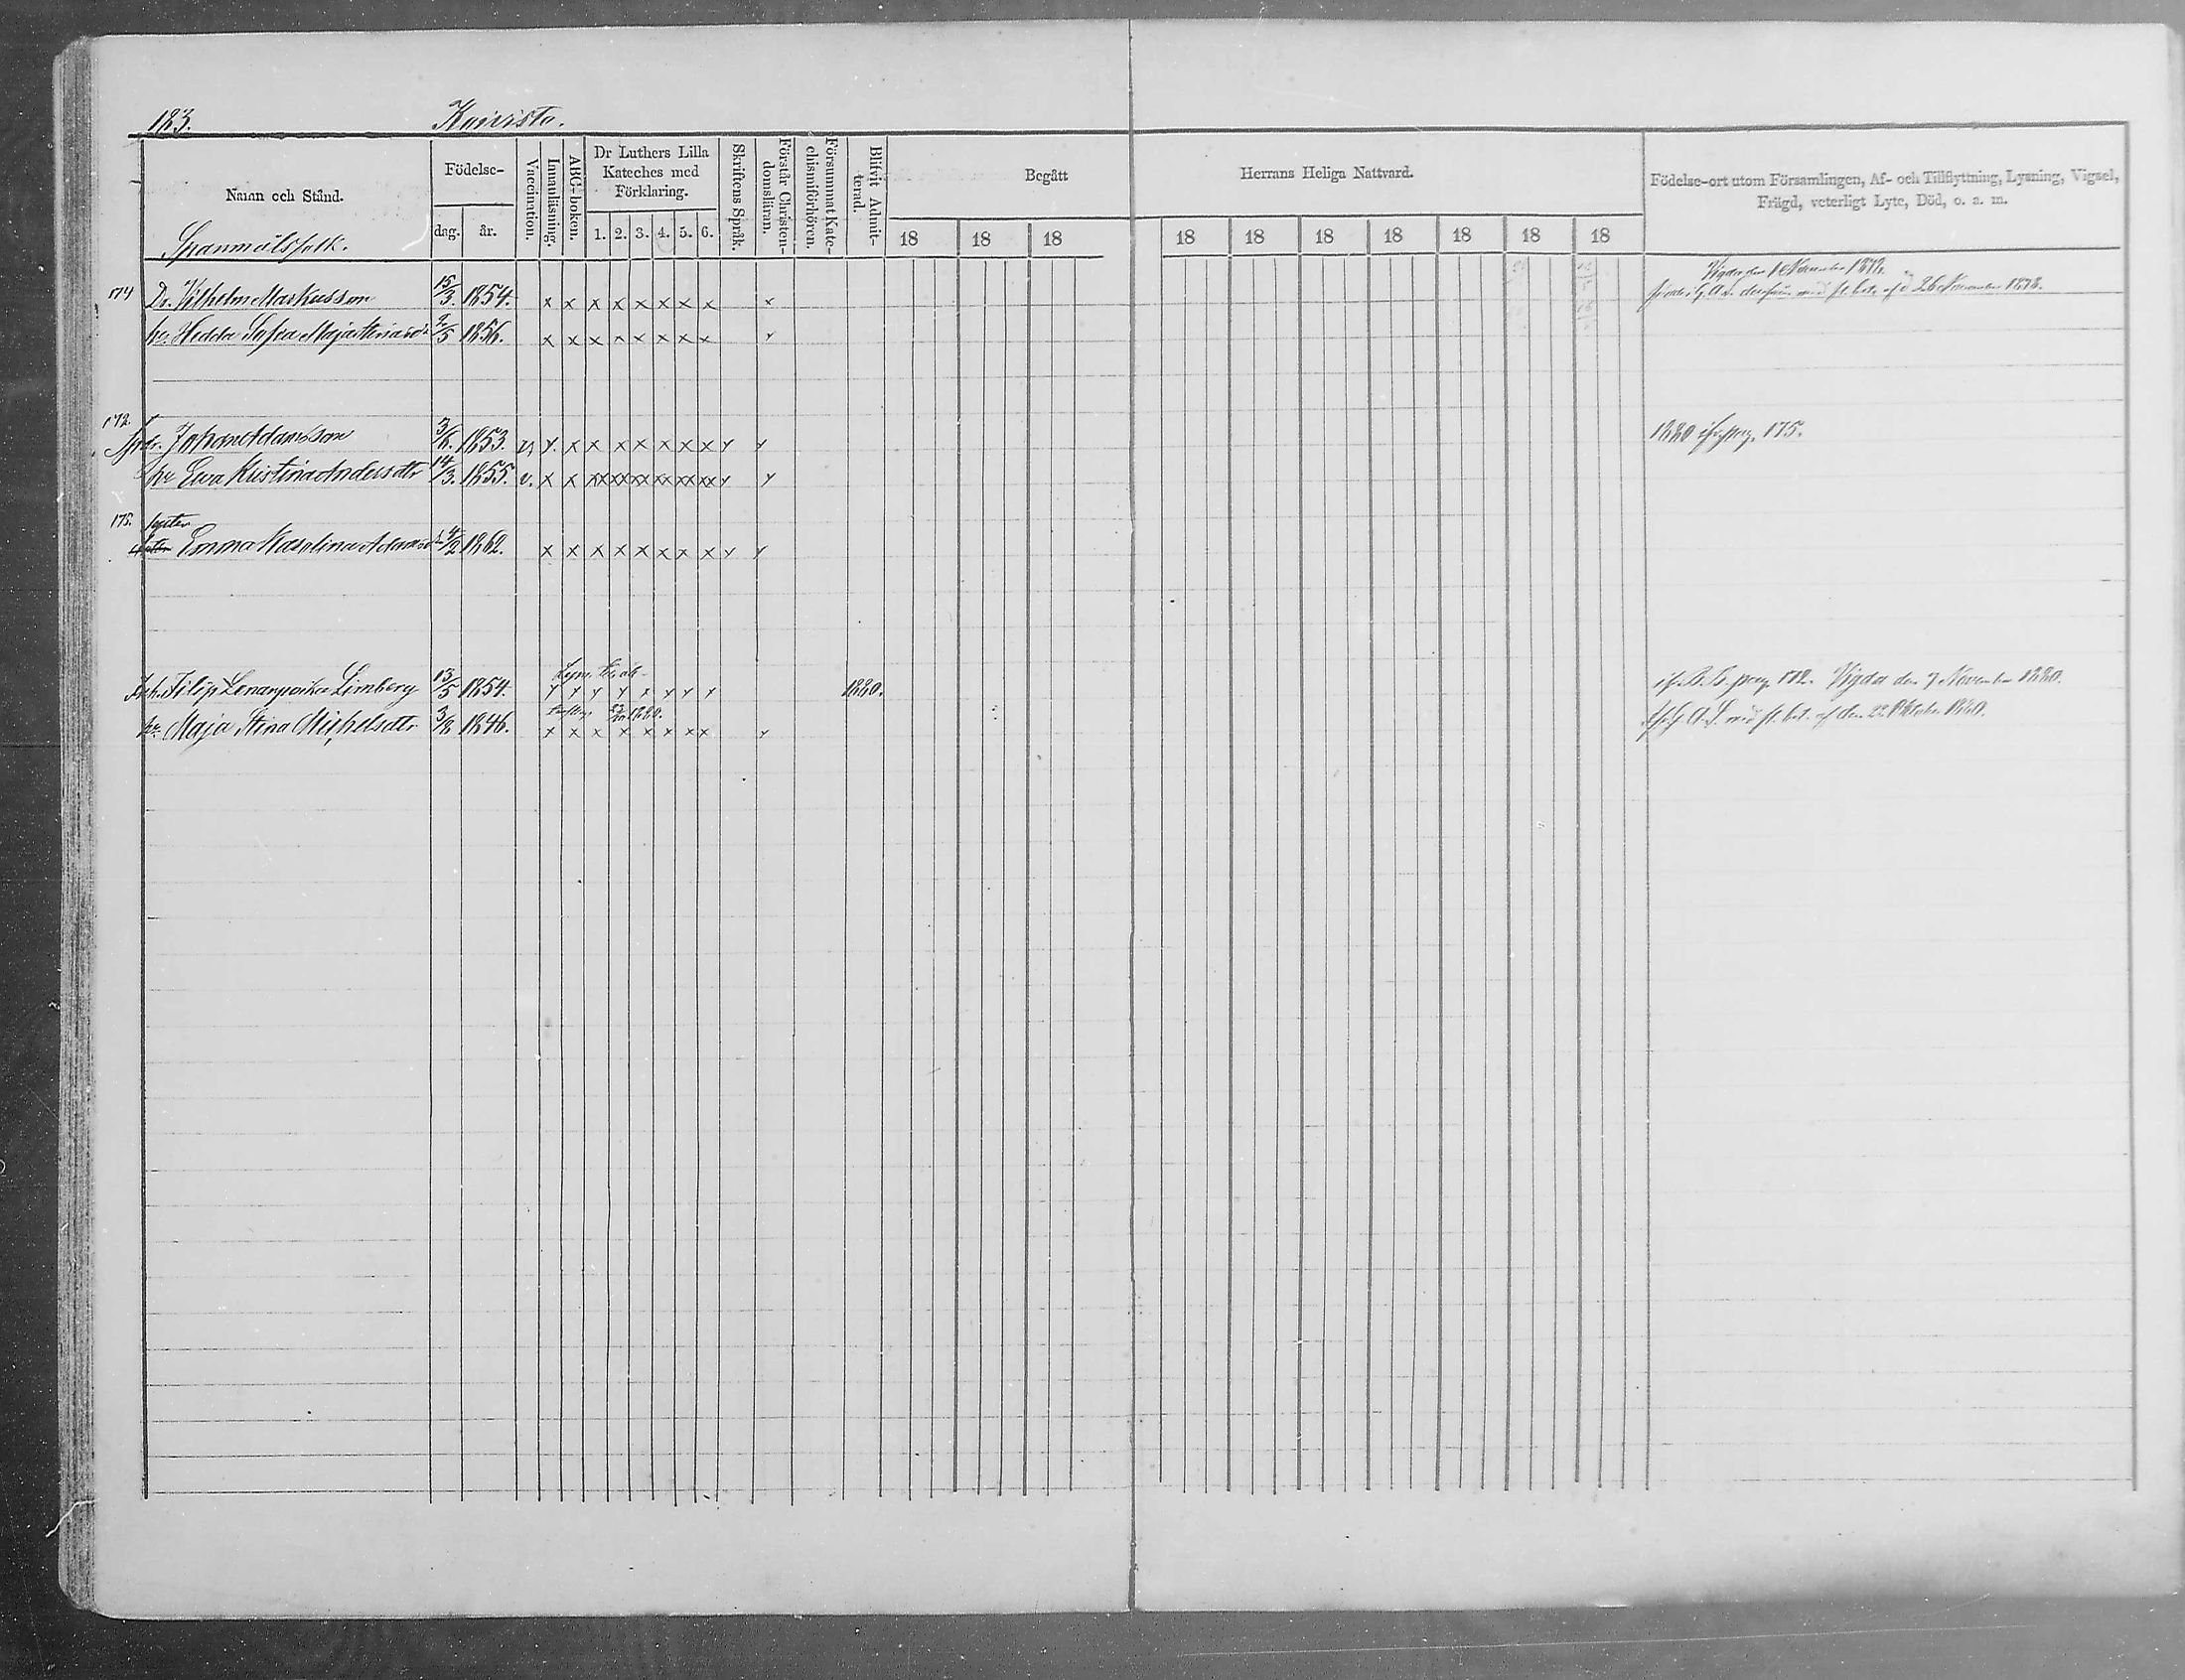 183. Koivisto.
Namn och Stånd.
Födelse-
dag. år.
Vaccination.
Innanläsning.
ABC-boken.
Dr Luthers Lilla Kateches med Förklaring.
1. 2. 3. 4. 5. 6.
Skriftens Språk.
Förstår Christendomsläran.
Försummat Katechismiförhören.
Blifvit Admitterad.
Begått Herrans Heliga Nattvard.
18 18 18 18 18 18 18 18 18 18
Födelse-ort utom Församlingen, Af- och Tillflyttning, Lysning, Vigsel,
Frägd, veterligt Lyte, Död, o. s. m.
Spanmålsfolk.
174 Dr. Vilhelm Markusson 15/3. 1854. x x x x x x x x x
November
hu. Hedda Sofia 2/5 1856. x x x x x x x x
172. Johan Adamsson 3/6. 1853. x x x x x x x 1880 pag. 175.
hu Ewa Kristina Andersdtr 14/3. 1855. v. x x
175. Emma Karolina 4/2 1862. x x x x x x x x
Filip Limberg 13/5 1854. 1880. pag. 172. Vigda den 7 November 1880.
hu. Maja Stina Michelsdtr 3/8 1846. 1880. x x x x x x x x af den 22 Oktober 1880.